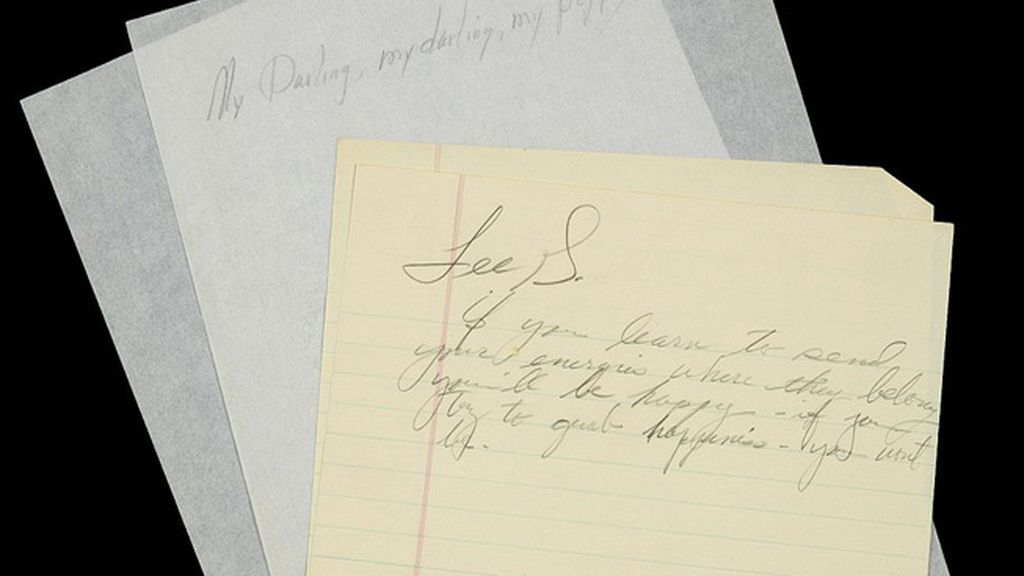 My Darling, my darling, my
Lee S.
if you learn to send
your energies where they belong
you'll be happy - if you
try to grab happiness - you wont
be.